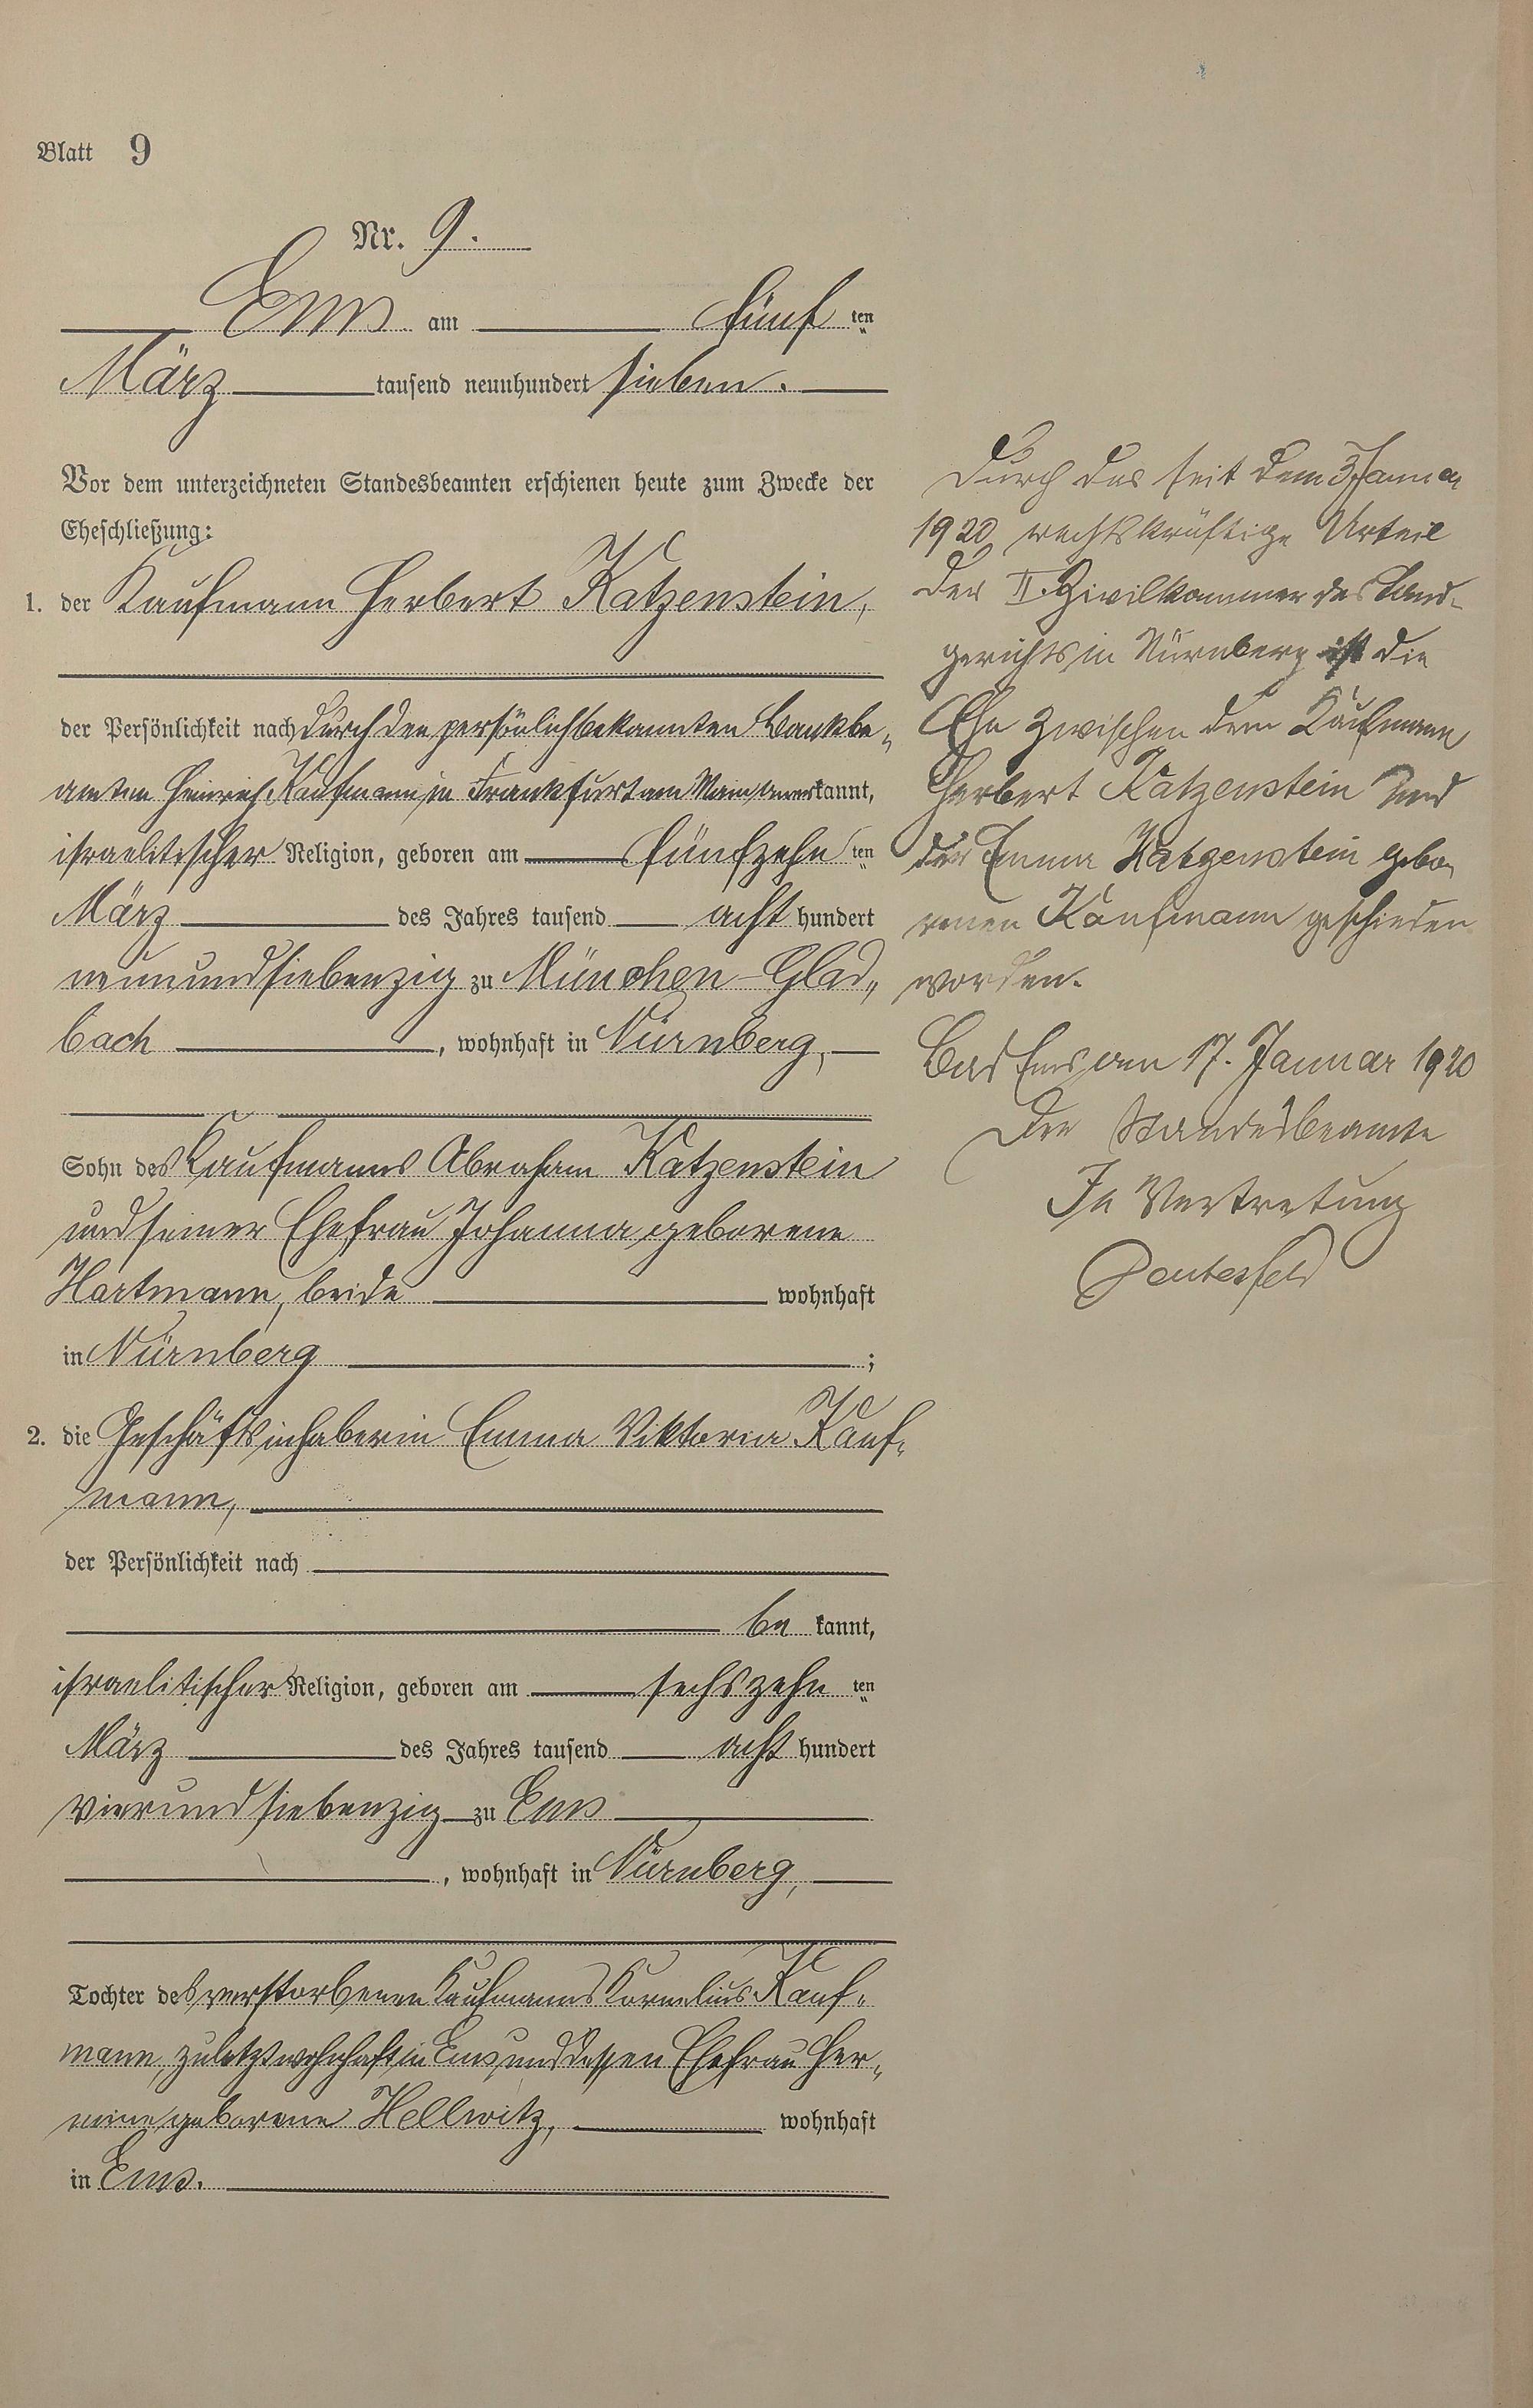 Blatt 9
Nr. 9.
Ems am fünf ten
März tausend neunhundert sieben.
Vor dem unterzeichneten Standesbeamten erschienen heute zum Zwecke der
Eheschließung:
1. der Kaufmann Herbert Katzenstein,
der Persönlichkeit nach durch den persönlich bekannten Bankbe„
amten Heinrich Kaufmann in Frankfurt am Main anerkannt,
israelitischer Religion, geboren am fünfzehn ten
März des Jahres tausend acht hundert
neunundsiebenzig zu München-Glad„
bach, wohnhaft in Nürnberg,
Sohn des Kaufmanns Abraham Katzenstein
und seiner Ehefrau Johanna geborene
Hartmann, beide wohnhaft
in Nürnberg;
2. die Geschäftsinhaberin Emma Viktoria Kauf„
mann,
der Persönlichkeit nach
be kannt,
israelitischer Religion, geboren am sechszehn ten
März des Jahres tausend acht hundert
vierundsiebenzig zu Ems
, wohnhaft in Nürnberg,
Tochter des verstorbenen Kaufmanns Kornelius Kauf„
mann, zuletzt wohnhaft in Ems, und dessen Ehefrau Her„
mine geborene Hellwitz, wohnhaft
in Ems.
Durch das seit dem 3 Januar
1920 rechtskräftige Urteil
der II. Zivilkammer des Land-
gerichts in Nürnberg ist die
Ehe zwischen dem Kaufmann
Herbert Katzenstein und
der Emma Katzenstein gebo„
renen Kaufmann geschieden
worden.
Bad Ems, am 17. Januar 1920
Der Standesbeamte
In Vertretung